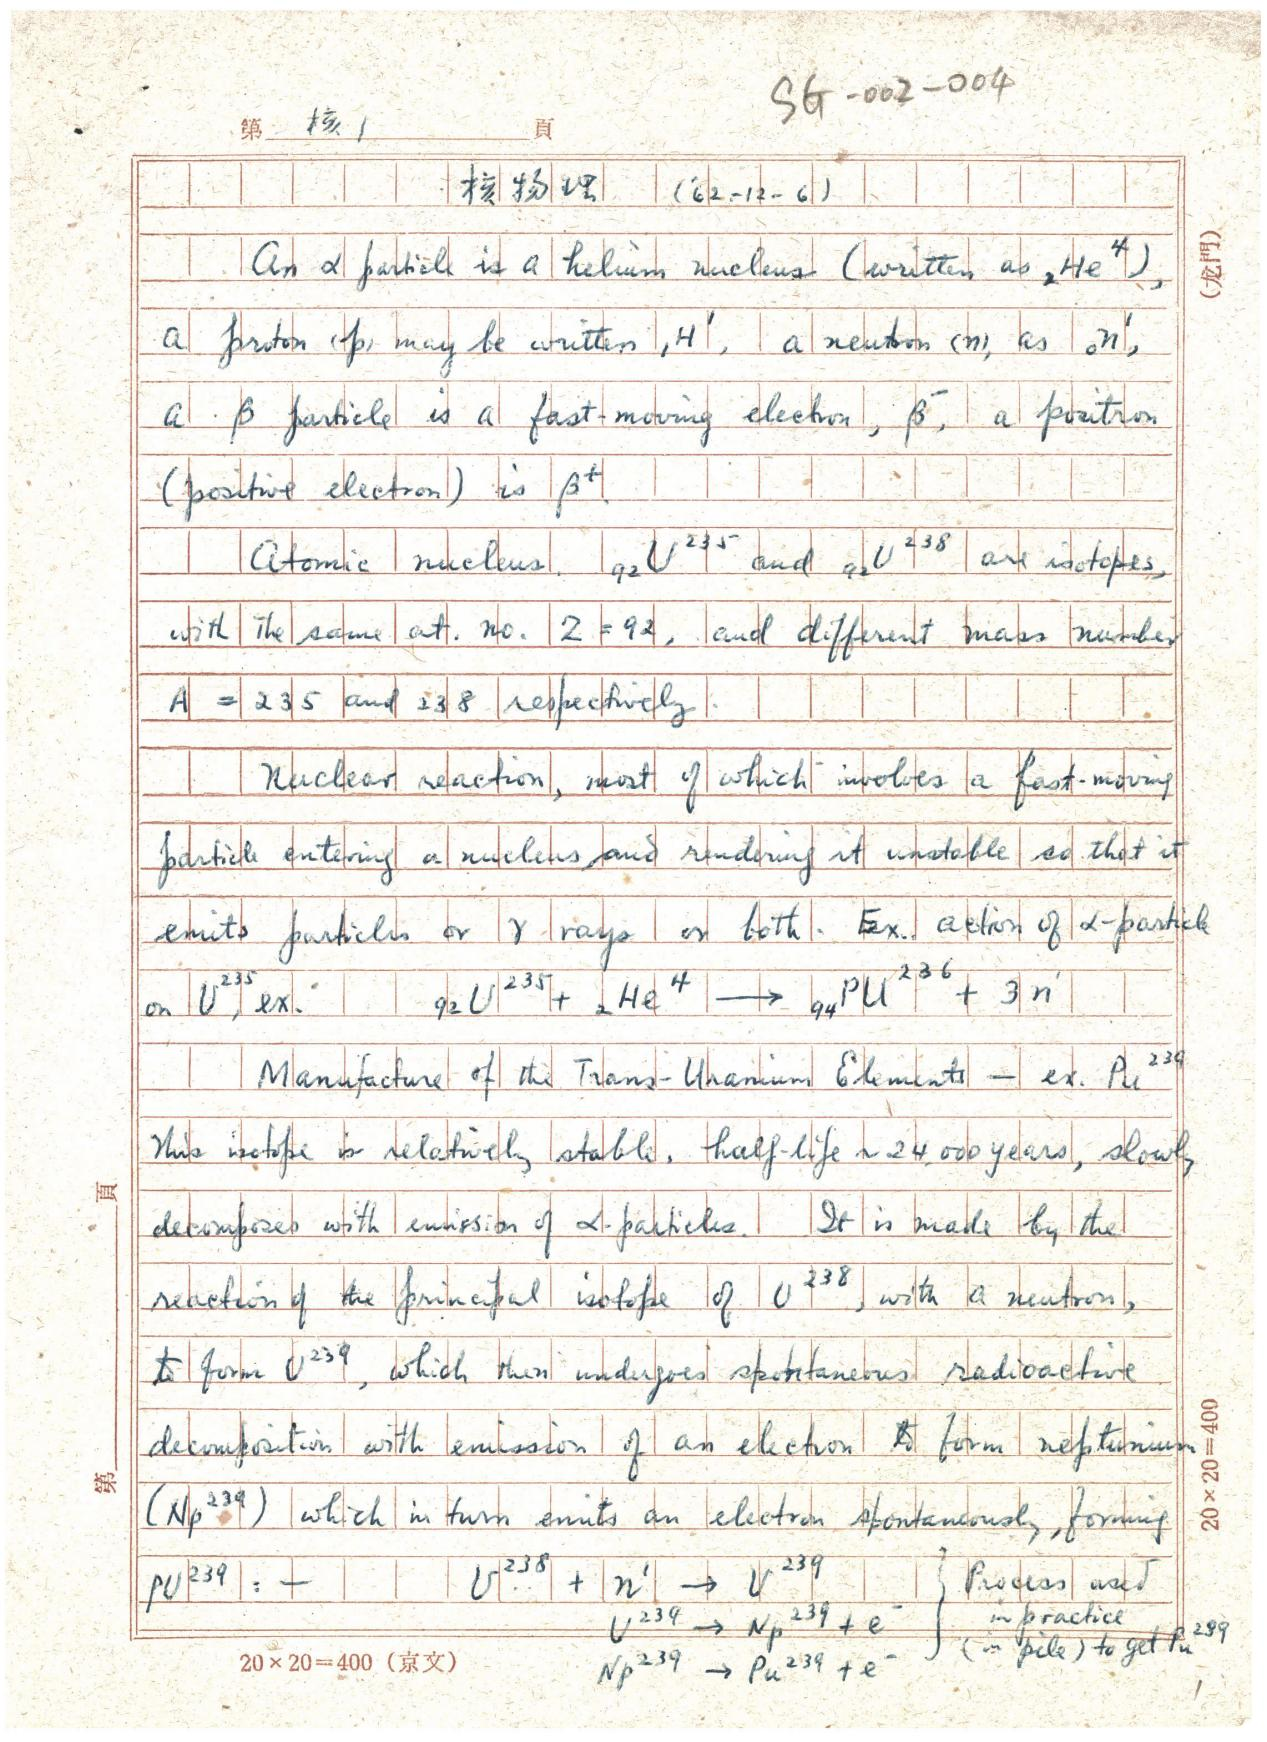 SG-002-004
第 核1 頁
核物理 ('62-12-6)
An α particle is a helium nucleus (written as ₂He⁴),
a proton (p) may be written ₁H¹, a neutron (n), as ₀n¹,
a β particle is a fast-moving electron, β⁻, a positron
(positive electron) is β⁺.
Atomic nucleus. ₉₂U²³⁵ and ₉₂U²³⁸ are isotopes,
with the same at. no. Z = 92, and different mass number
A = 235 and 238 respectively.
Nuclear reaction, most of which involves a fast-moving
particle entering a nucleus and rendering it unstable so that it
emits particles or γ rays or both. Ex. action of α-particle
on U²³⁵, ex. ₉₂U²³⁵ + ₂He⁴ ⟶ ₉₄PU²³⁶ + 3n¹
Manufacture of the Trans-Uranium Elements — ex. Pu²³⁹
This isotope is relatively stable, half-life ~ 24,000 years, slowly
decomposes with emission of α-particles. It is made by the
reaction of the principal isotope of U²³⁸, with a neutron,
to form U²³⁹, which then undergoes spontaneous radioactive
decomposition with emission of an electron to form neptunium
(Np²³⁹) which in turn emits an electron spontaneously, forming
PU²³⁹ :— U²³⁸ + n¹ → U²³⁹
U²³⁹ → Np²³⁹ + e⁻
Np²³⁹ → Pu²³⁹ + e⁻
} Process used
in practice
(in pile) to get Pu²³⁹
20×20=400 (京文)
1
(龙門)
20×20=400
第 頁